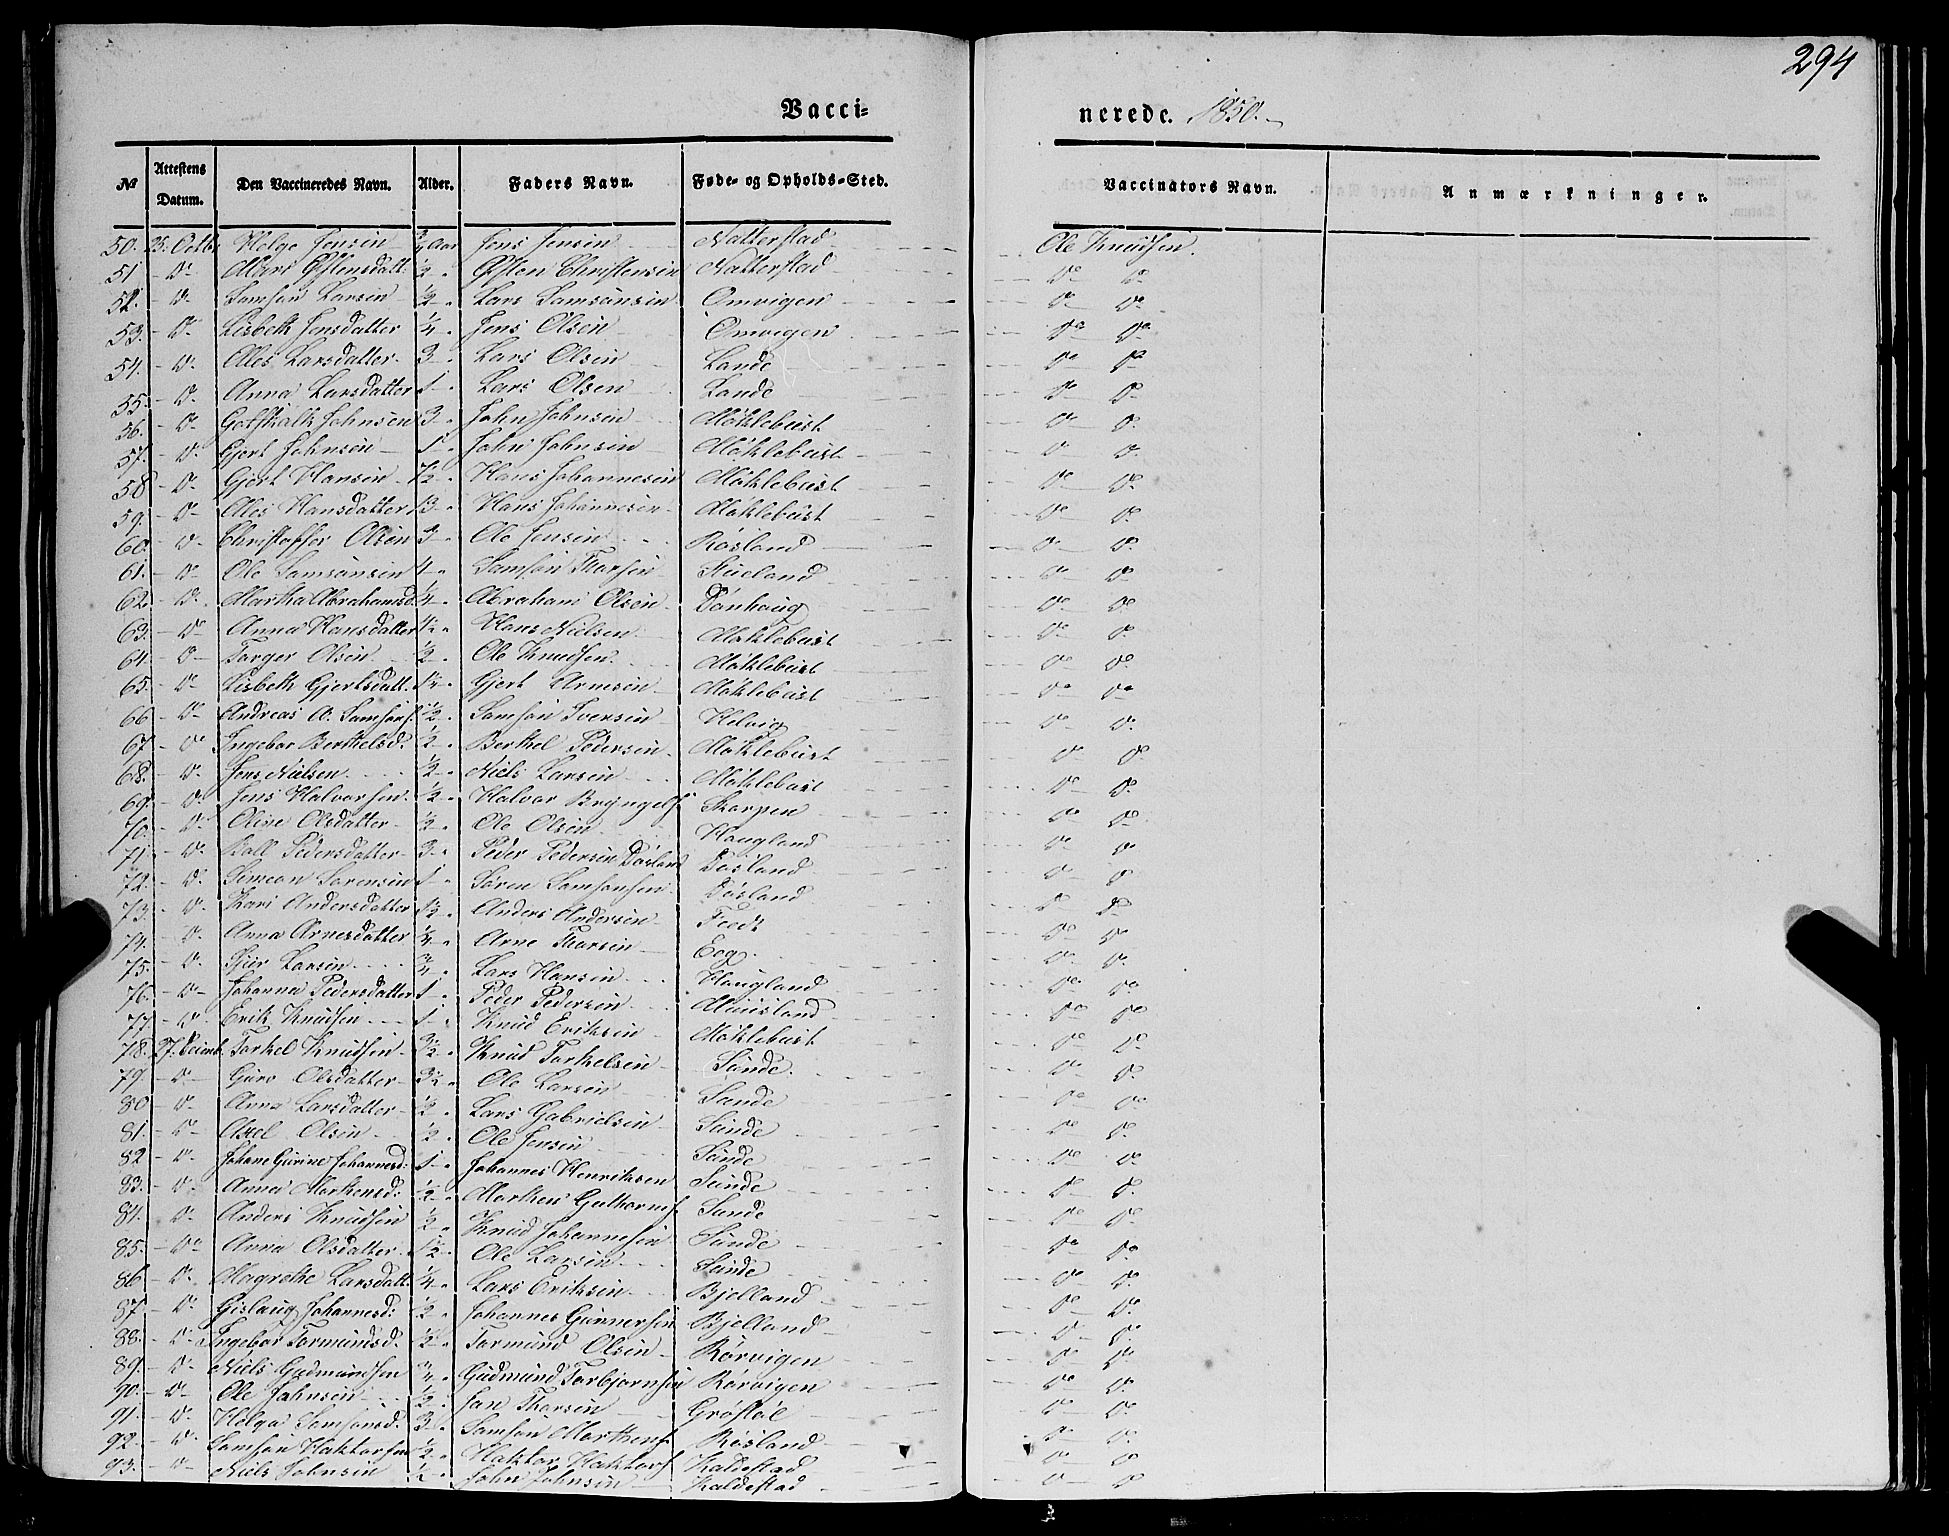 294
Vacci= nerede. 1850.
No Attestens Datum. Den Vaccineredes Navn. Alder. Faders Navn. Føde- og Opholds-Sted. Vaccinators Navn. Anmærkninger.
50. 25. Octbr Helge Jensen ¾ Aar Jens Jensen Natterstad Ole Knudsen.
51 - do - Mari Østensdatt. ½ " Østen Christensen Natterstad do do
52. - do - Samson Larsen ½ " Lars Samsonsen Omvigen do do
53. - do - Lisbeth Jensdatter ¼ " Jens Olsen Omvigen do do
54. - do - Ales Larsdatter 3 " Lars Olsen Lande do do
55. - do - Anna Larsdatter 1 Lars Olsen Lande do do
56. - do - Gotskalk Johnsen 3 " John Johnsen Møklebust do do
57. - do - Gjert Johnsen 1 " John Johnsen Møklebust do do
58 - do - Gjert Hansen 7½ " Hans Johannesen Møklebust do do
59. - do - Ales Hansdatter 13 " Hans Johannesen Møklebust do do
60. - do - Christoffer Olsen 3 " Ole Jensen Røsland do do
61. - do - Ole Samsonsen 4 " Samson Thorsen Stueland do do
62 - do - Martha Abrahamsd. ¼ " Abraham Olsen Dønhaug do do
63. - do - Anna Hansdatter 4½ " Hans Nielsen Møklebust do do
64. - do - Torger Olsen ½ " Ole Knudsen Møklebust do do
65. - do - Lisbeth Gjertsdatt. 1¼ " Gjert Arnesen Møklebust do do
66 - do - Andreas A. Samsons. 1½ Samson Iversen Helvig do do
67 - do Ingebor Berthelsd. ½ " Berthel Pedersen Møklebust do do
68. - do - Jens Nielsen ½ " Niels Larsen Møklebust do do
69. - do Jens Halvorsen ½ " Halvor Bryngels. Skorpen do do
70. - do Oline Olsdatter ½ " Ole Olsen Haugland do do
71. - do - Pedersdatter 3 " Peder Pedersen Døsland Døsland do do
72. - do Simeon Sorensen 1 Søren Samsonsen Døsland do do
73. - do - Kari Andersdatter 1½ " Anders Andersen Feedt do do
74. - do - Anna Arnesdatter ¼ " Arne Thorsen Eeg do do
75. - do - Sjur Larsen ¾ " Lars Hansen Haugland do do
76. - do - Johanna Pedersdatter 1 " Peder Pedersen do do
77. - do - Erik Knudsen 1 " Knud Eriksen Møklebust do do
78. 27. Torkel Knudsen 3½ " Knud Torkelsen Sunde do do
79. - do - Guro Olsdatter 3½ " Ole Larsen Sunde do do
80 - do - Anna Larsdatter ½ " Lars Gabrielsen Sunde do do
81. - do - Axel Olsen ½ " Ole Jensen Sunde do do
82 - do - Johane Gurine Johannesd: 1 " Johannes Henriksen Sunde do do
83. - do - Anna Morthensd: ½ " Morthen Guthorms. Sunde do do
84. - do - Anders Knudsen ½ " Knud Johannesen Sunde do do
85. - do - Anna Olsdatter 1½ " Ole Larsen Sunde do do
86. - do - Magrethe Larsdatt. ¼ " Lars Eriksen Bjelland do do
87. - do - Gislaug Johannesd: ½ " Johannes Gunnersen Bjelland do do
88. - do - Ingebor Tormundsd. ½ " Tormund Olsen Rørvigen do do
89. - do - Niels Gudmundsen ¾ " Gudmund Torbjørnsen Rørvigen do do
90. - do - Ole Johnsen ½ " Jon Thorsen Grøstøl do do
91. - do - Helga Samsonsd. 3 " Samson Morthens. Røsland do do
92. - do - Samson Haktorsen ½ " Haktor Haktors. Kaldestad do do
93. - do - Niels Johnsen ½ " John Johnsen Kaldestad do do